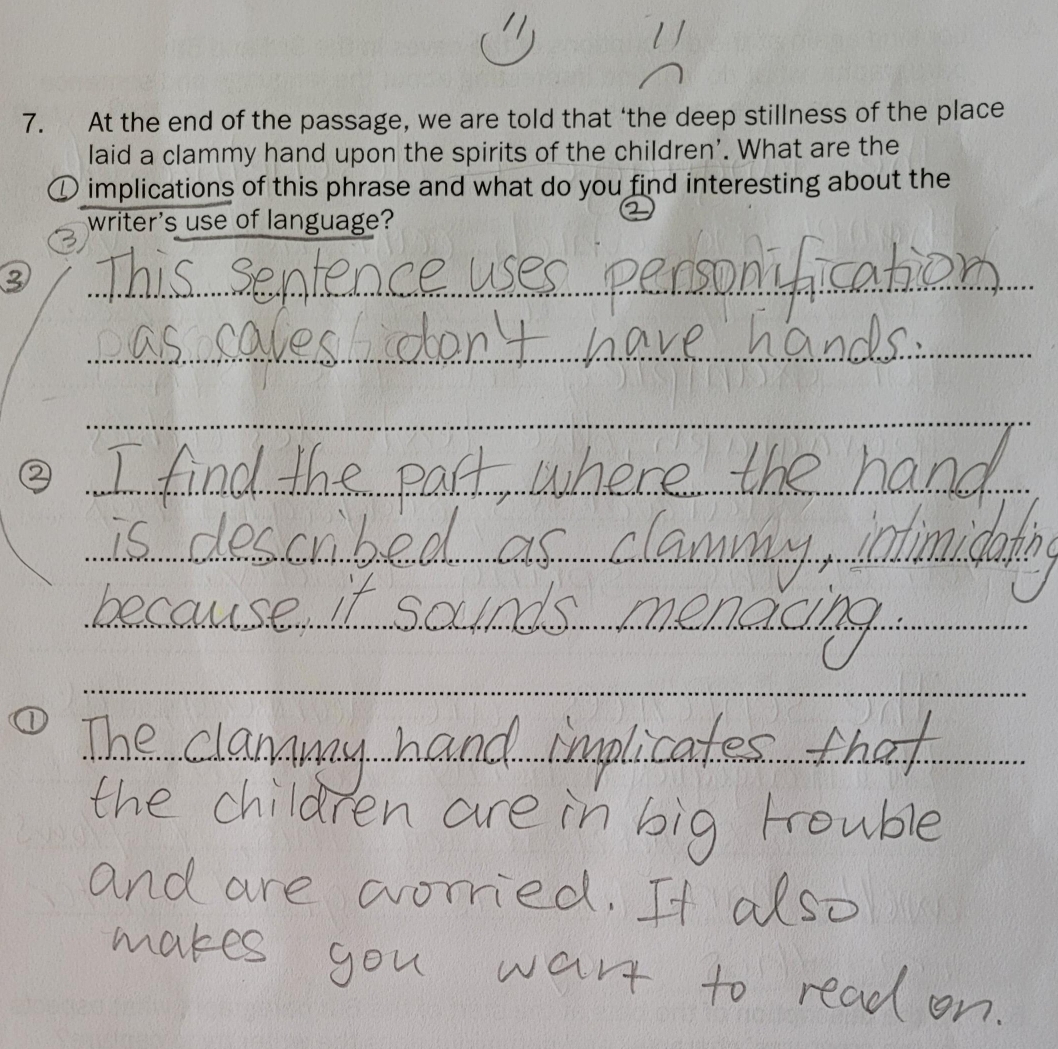 7. At the end of the passage, we are told that ‘the deep stillness of the place
laid a clammy hand upon the spirits of the children’. What are the
① implications of this phrase and what do you find interesting about the
②
③ writer’s use of language?
③ This sentence uses personification,
as caves don't have hands.
② I find the part, where the hand
is described as clammy, intimidating
because, it sounds menacing.
① The clammy hand implicates that
the children are in big trouble
and are worried. It also
makes you want to read on.